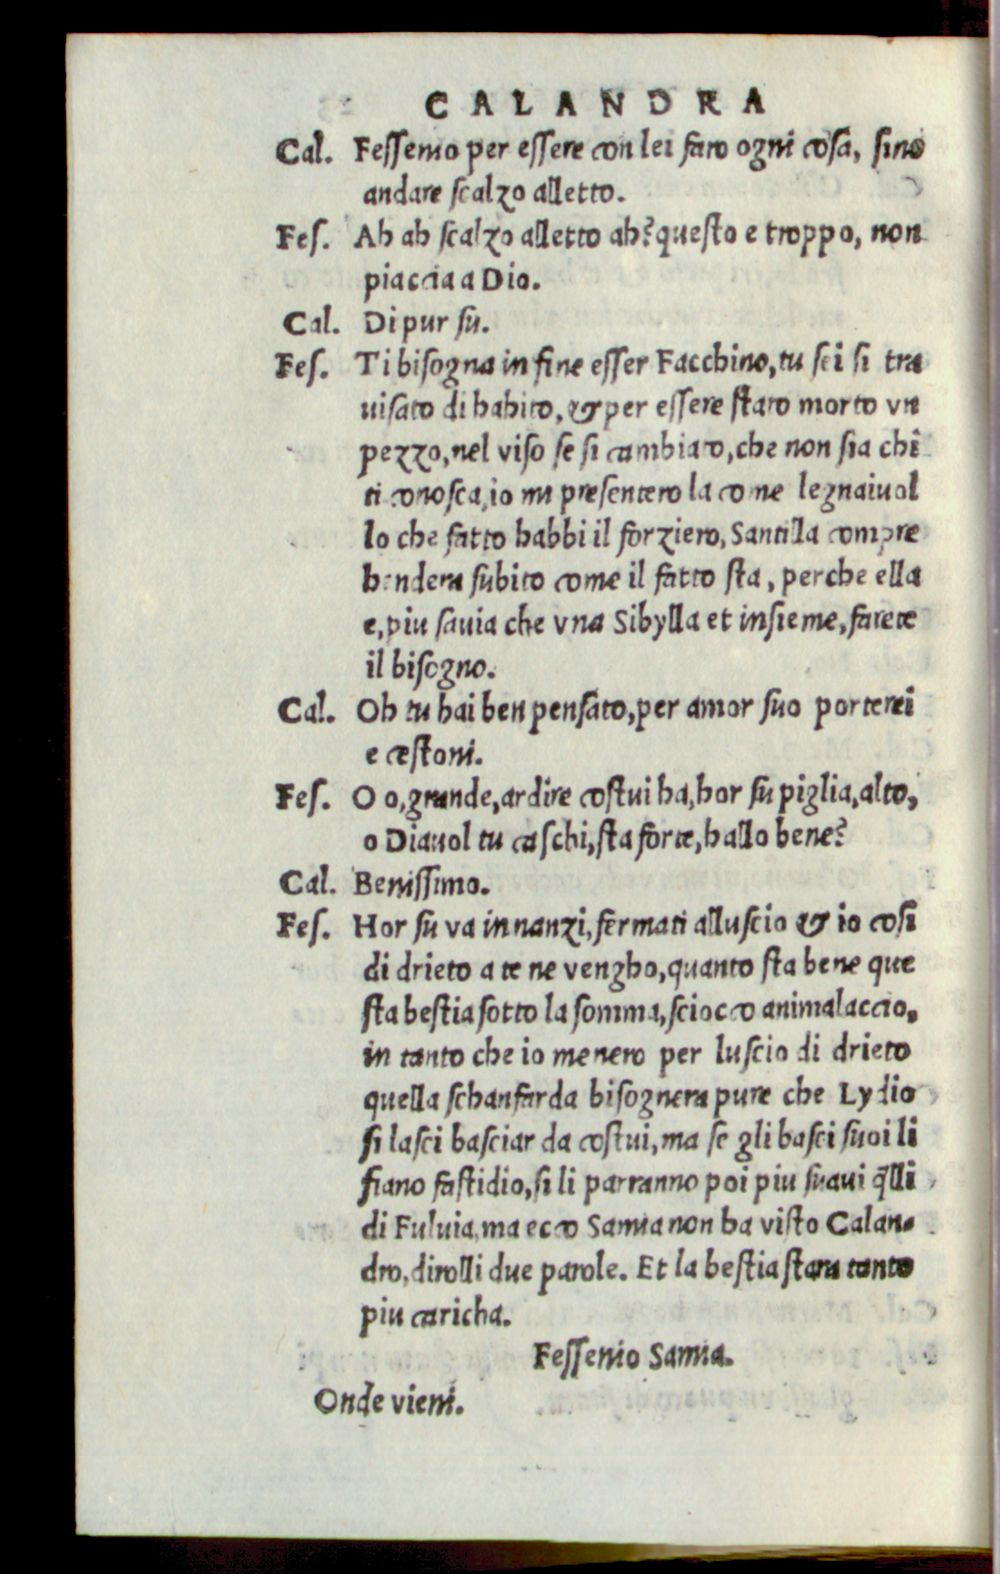 CALANDRA
Cal. Fessenio per essere con lei faro ogni cosa, sino
andare scalzo alletto.
Fes. Ah ah scalzo alletto ah? questo e troppo, non
piaccia a Dio.
Cal. Di pur su.
Fes. Ti bisogna in fine esser Facchino, tu sei si tra
uisato di habito, & per essere stato morto vn
pezzo, nel viso se si cambiato, che non sia chi
ti conosca, io mi presentero la come legnaiuol
lo che fatto habbi il forziero, Santilla compre
hendera subito come il fatto sta, perche ella
e, piu sauia che vna Sibylla et insieme, farete
il bisogno.
Cal. Oh tu hai ben pensato, per amor suo porterei
e cestoni.
Fes. O o, grande, ardire costui ha, hor su piglia, alto,
o Diauol tu caschi, sta forte, hallo bene?
Cal. Benissimo.
Fes. Hor su va innanzi, fermati alluscio & io cosi
di drieto a te ne vengho, quanto sta bene que
sta bestia sotto la somma, sciocco animalaccio,
in tanto che io menero per luscio di drieto
quella schanfarda bisognera pure che Lydio
si lasci basciar da costui, ma se gli basci suoi li
fiano fastidio, si li parranno poi piu suaui q̃lli
di Fuluia, ma ecco Samia non ha visto Calan-
dro, dirolli due parole. Et la bestia stara tanto
piu caricha.
Fessenio Samia.
Onde vieni.